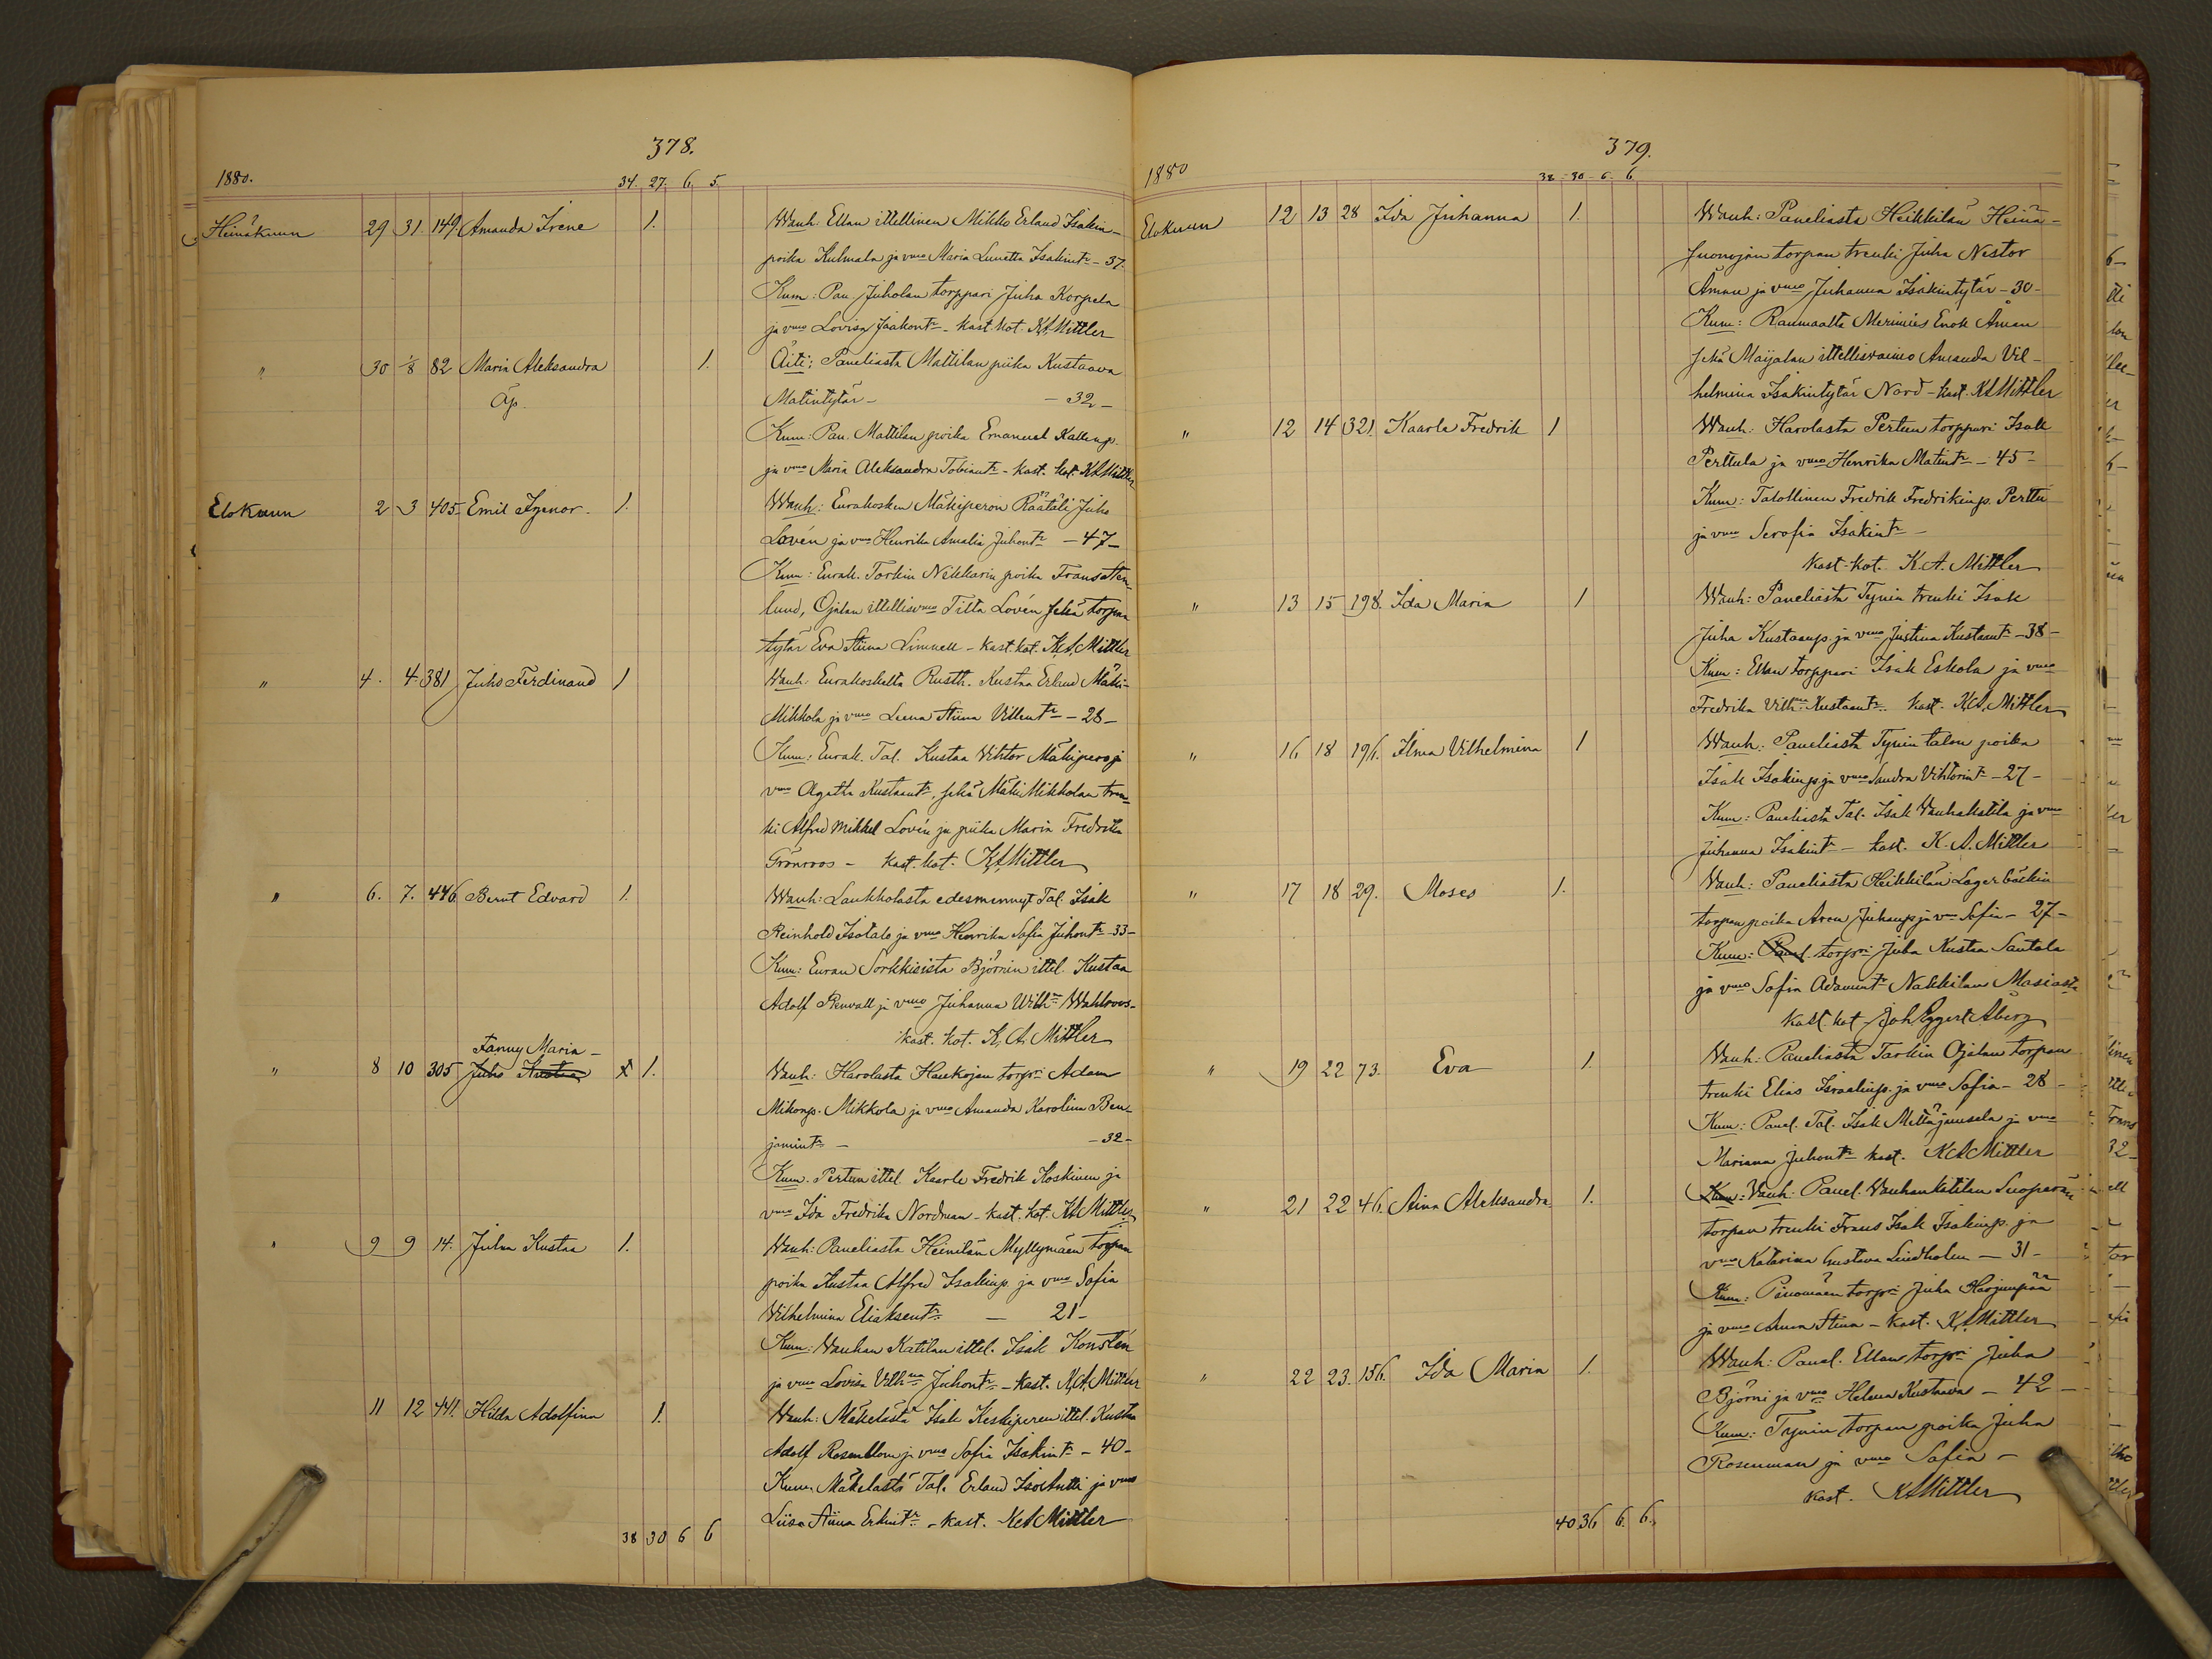 378.
1880.
34. 27. 6. 5.
Heinäkuun 29 31. 149. Amanda Irene 1. Wanh: Ellan ittellinen Mikko Erland Isakin-
poika Kulmala ja vmo Maria Lunetta Isakintr - 37.
Kum: Pan. Juholan torppari Juha Korpela
ja vmo Lovisa Jaakontr - kast. kot. KAMittler
" 30 1/8 82 Maria Aleksandra 1. Äiti: Paneliasta Mattilan piika Kustaava
Äp. Matintytär - - 32 -
Kum: Pan. Mattilan poika Emanuel Kallenp.
ja vmo Maria Aleksandra Tobiantr - kast. kot. KAMittler
Elokuun 2 3 405 Emil Ignor. 1. Wanh: Eurakosken Mäkiperon Räätäli Juho
Lovén ja vmo Henrika Amalia Juhontr - 47 -
Kum: Eurak. Torkin Nikkarin poika Frans
lund, Ojalan ittellisvmo Tilta Lovén sekä torpan
tytär Eva Stiina Limnell - kast. kot. K.A. Mittler
" 4. 4. 381 Juho Ferdinand 1 Wanh: Eurakoskelta Rusth. Kustaa Erland Mäki-
Mikkola ja vmo Leena Stiina Villentr - 28 -
Kum: Eurak. Tal. Kustaa Vihtor Mäkipero ja
vmo Agatha Kustaantr, sekä Mäki Mikkolan tren-
ki Alfred Mikkel Lovén ja piika Maria Fredrika
Grönroos - kast. kot. KAMittler
" 6. 7. 446 Bernt Edvard 1. Wanh: Laukkolasta edesmennyt Tal. Isak
Reinhold Isotalo ja vmo Henrika Sofia Juhontr - 33 -
Kum: Euran Sorkkisista Björnin ittel. Kustaa
Adolf Renvall ja vmo Juhanna Wilhna Wahlroos -
kast. kot. K. A. Mittler
Fanny Maria -
" 8 10 305 Juho Kustaa x 1. Wanh: Harolasta Haukojan torpri Adam
Mikonp. Mikkola ja vmo Amanda Karolina Ben-
jamintr - - 32 -
Kum. Pertun ittel Kaarle Fredrik Koskinen ja
vmo Ida Fredrika Nordman - kast. kot. KAMittler
" 9 9 14. Juha Kustaa 1. Wanh: Paneliasta Heinilän Myllymäen torpan
poika Kustaa Alfred Isakinp. ja vmo Sofia
Vilhelmina Eliaksentr - 21 -
Kum: Wanhan Katilan ittel. Isak Konstén
ja vmo Lovisa Vilhna Juhontr - kast. K.A. Mittler
11 12 441. Hilda Adolfina 1. Wanh: Mäkelästä Isak Keskiperen ittel. Kustaa
Adolf Rosenblom ja vmo Sofia Isakintr - 40 -
Kum. Mäkelästä Tal. Erland IsoAntti ja vmo
Liisa Stiina Erkintr - kast. KAMittler
38 30 6 6
379.
1880
38 30 6 6
Elokuun 12 13 28 Ida Juhanna 1. Wanh: Paneliasta Heikkilän Heinä-
suonojan torpan trenki Juha Nestor
Åman ja vmo Juhanna Isakintytär - 30 -
Kum: Raumaalta Merimies Enok Åman
sekä Maijalan ittellisvaimo Amanda Vil-
helmina Isakintytär Nord - kast. KAMittler
" 12 14 321. Kaarla Fredrik 1 Wanh: Harolasta Pertun torppari Isak
Perttula ja vmo Henrika Matintr - 45 -
Kum: Talollinen Fredrik Fredrikinp. Perttu
ja vmo Serafia Isakintr -
kast. kot. K.A. Mittler
" 13 15 198. Ida Maria 1 Wanh: Paneliasta Tynin trenki Isak
Juha Kustaanp. ja vmo Justina Kustaantr - 38 -
Kum: Ellan torppari Isak Eskola ja vmo
Fredrika Vilhna Kustaantr. kast. K.A. Mittler
" 16 18 196. Ilma Vilhelmina 1 Wanh: Paneliasta Tynin talon poika
Isak Isakinp. ja vmo Sandra Vihtorintr - 27 -
Kum: Paneliasta Tal. Isak Wanhakatila ja vmo
Juhanna Isakintr - kast. K. A. Mittler
" 17 18 29. Moses 1. Wanh: Paneliasta Heikkilän Lagerbäckin
torpan poika Aron Juhanp. ja vmo Sofia - 27 -
Kum: Panel. torpri Juha Kustaa Santala
ja vmo Sofia Adamintr Nakkilan Masiasta
kast. kot Joh Eggert Åberg
" 19 22 73. Eva 1. Wanh: Paneliasta Tarkin Ojalan torpan
trenki Elias Israelinp. ja vmo Sofia - 28 -
Kum: Panel. Tal. Isak Mettäjänsela ja vmo
Mariana Juhontr kast. KAMittler
" 21 22 46. Aina Aleksandra 1. Kum: Wanh: Panel. Wanhankatilan Suoperän
torpan trenki Frans Isak Isakinp. ja
vmo Katarina Gustava Lindholm - 31 -
Kum: Pinomäen torpri Juha Harjunpää
ja vmo Anna Stina - kast. KAMittler
" 22 23. 156. Ida Maria 1. Wanh: Panel. Ellan torpri Juha
Björni ja vmo Helena Kustaava - 42 -
Kum: Tynin torpan poika Juha
Rosenman ja vmo Sofia -
kast. KAMittler
40 36 6. 6.